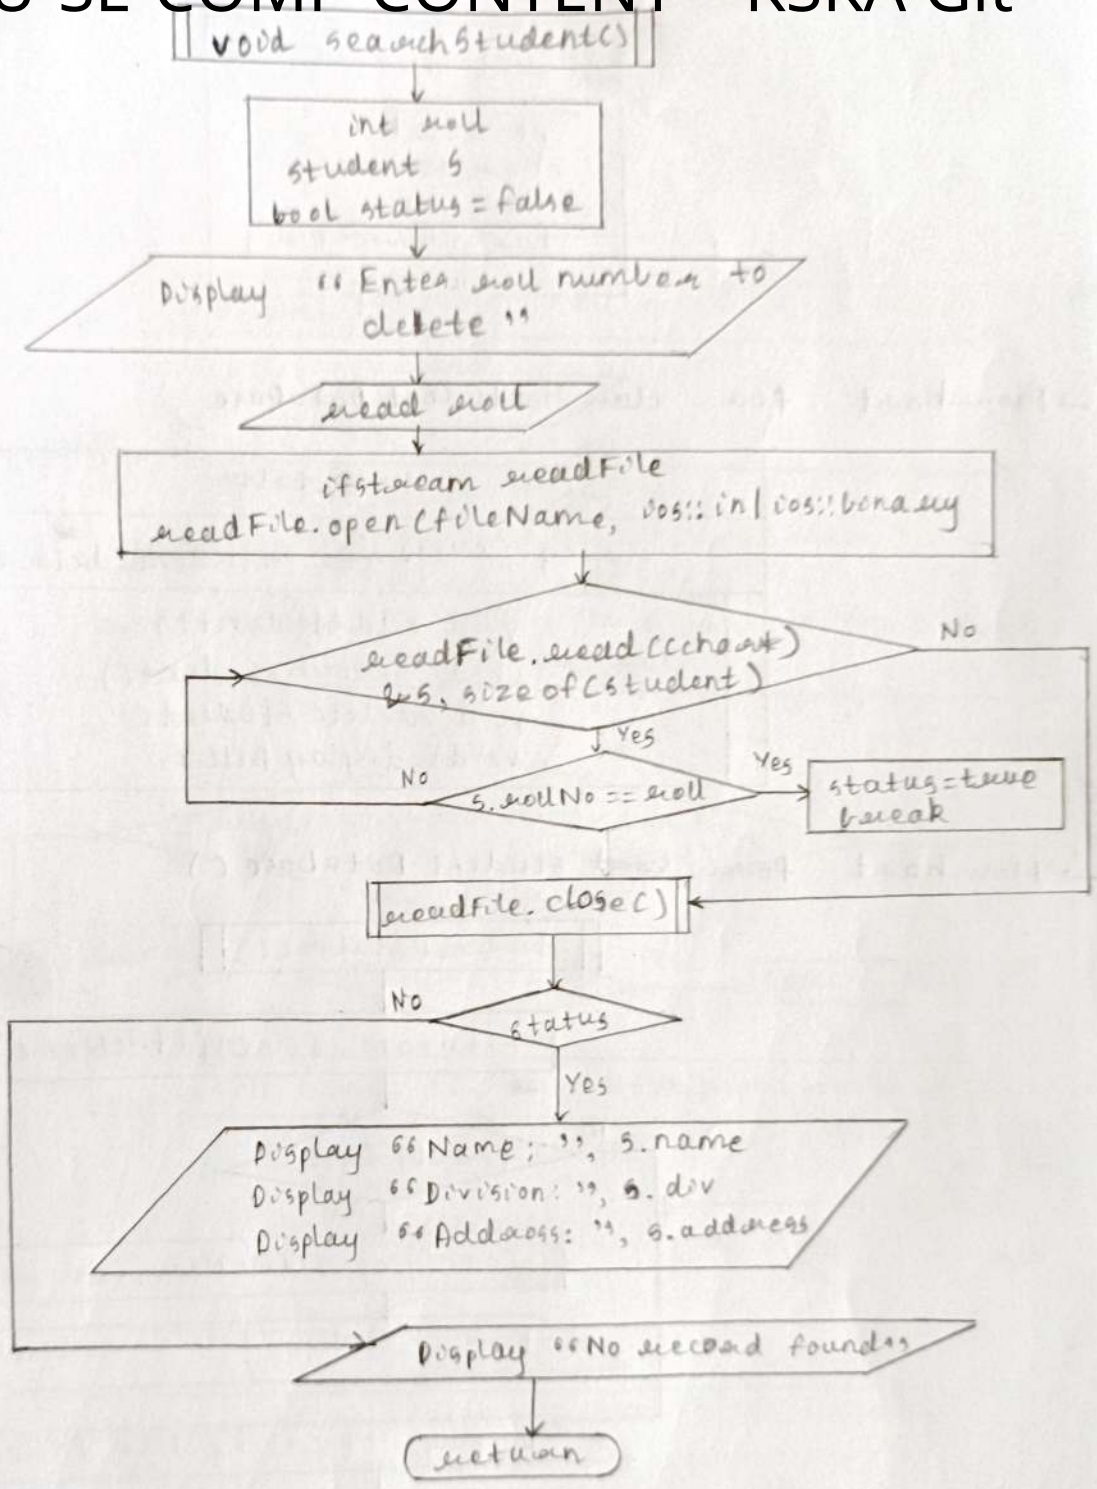 U-SE-COMP-CONTENT - KSKA Git
void searchStudent()
int roll
student s
bool status = false
Display "Enter roll number to
delete"
read roll
ifstream readFile
readFile.open(fileName, ios::in | ios::binary
readFile.read((char*)
&s, sizeof(student)
No
Yes
s.rollNo == roll
No
Yes
status = true
break
readFile.close()
status
No
Yes
Display "Name: ", s.name
Display "Division: ", s.div
Display "Address: ", s.address
Display "No record found"
return